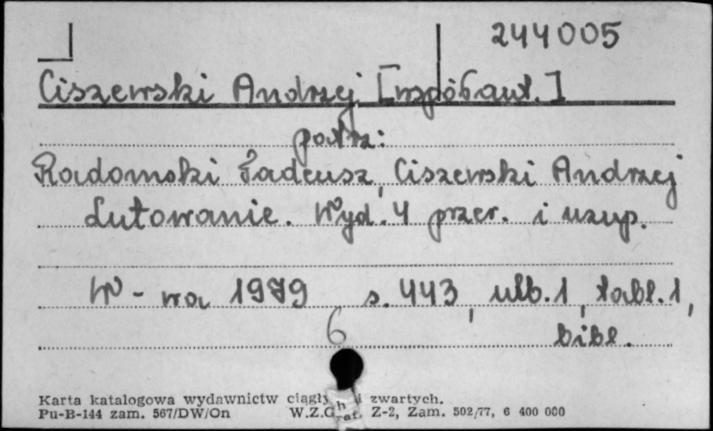 244005
Ciszewski Andrzej [współaut.]
patrz:
Radomski Tadeusz, Ciszewski Andrzej
Lutowanie. Wyd. 4 przer. i uzup.
W-wa 1979 s. 443, ulb. 1, tabl. 1,
6 bibl.
Karta katalogowa wydawnictw i zwartych.
Pu-B-144 zam. 567/DW/On W.Z.Graf. Z-2, Zam. 502/77, 6 400 000